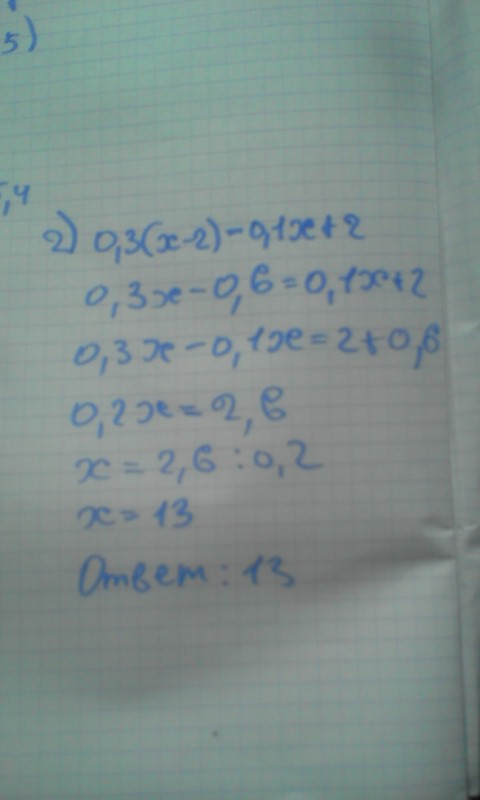 5)
,4
2) 0,3(x-2)-0,1x+2
0,3x-0,6=0,1x+2
0,3x-0,1x=2+0,6
0,2x=2,6
x=2,6:0,2
x=13
Ответ: 13